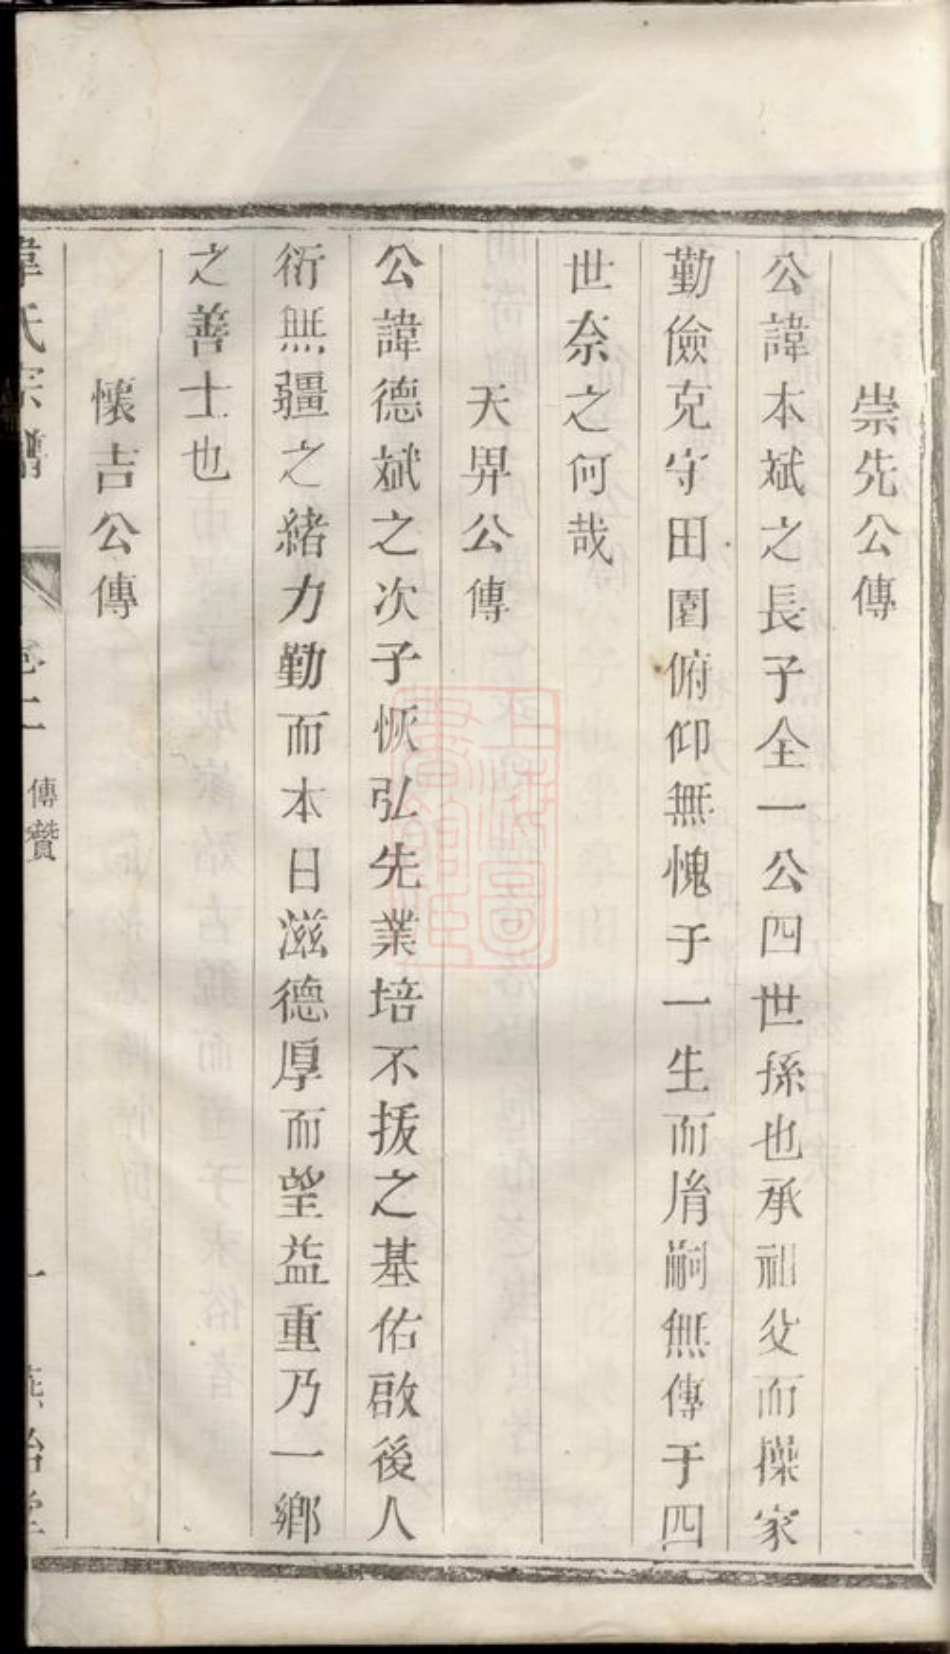 崇先公傳
公諱本斌之長子全一公四世孫也承祖父而操家
勤儉克守田園俯仰無愧于一生而胤嗣無傳于四
世奈之何哉
天畀公傳
公諱德斌之次子恢弘先業培不拔之基佑啟後人
衍無疆之緒力勤而本日滋德厚而望益重乃一鄉
之善士也
懷吉公傳
韋氏宗譜
卷二
傳贊
一